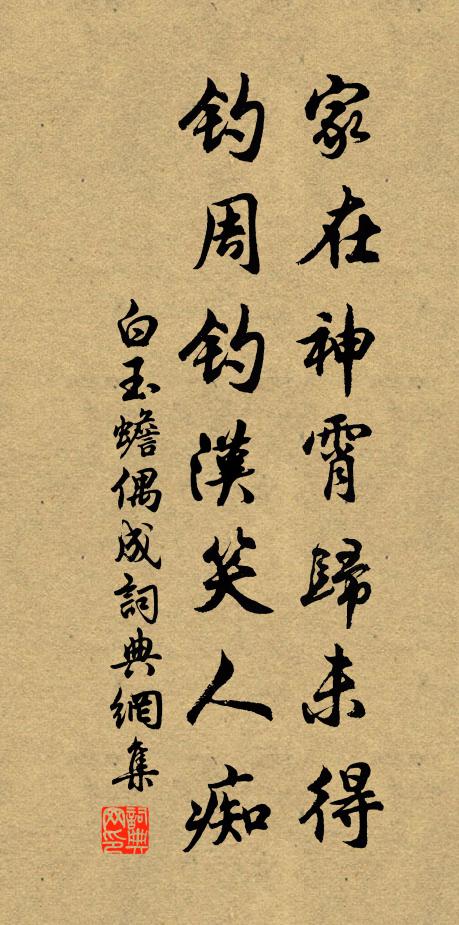 家在神霄歸未得
釣周釣漢笑人痴
白玉蟾偶成詞典網集
詞典網印